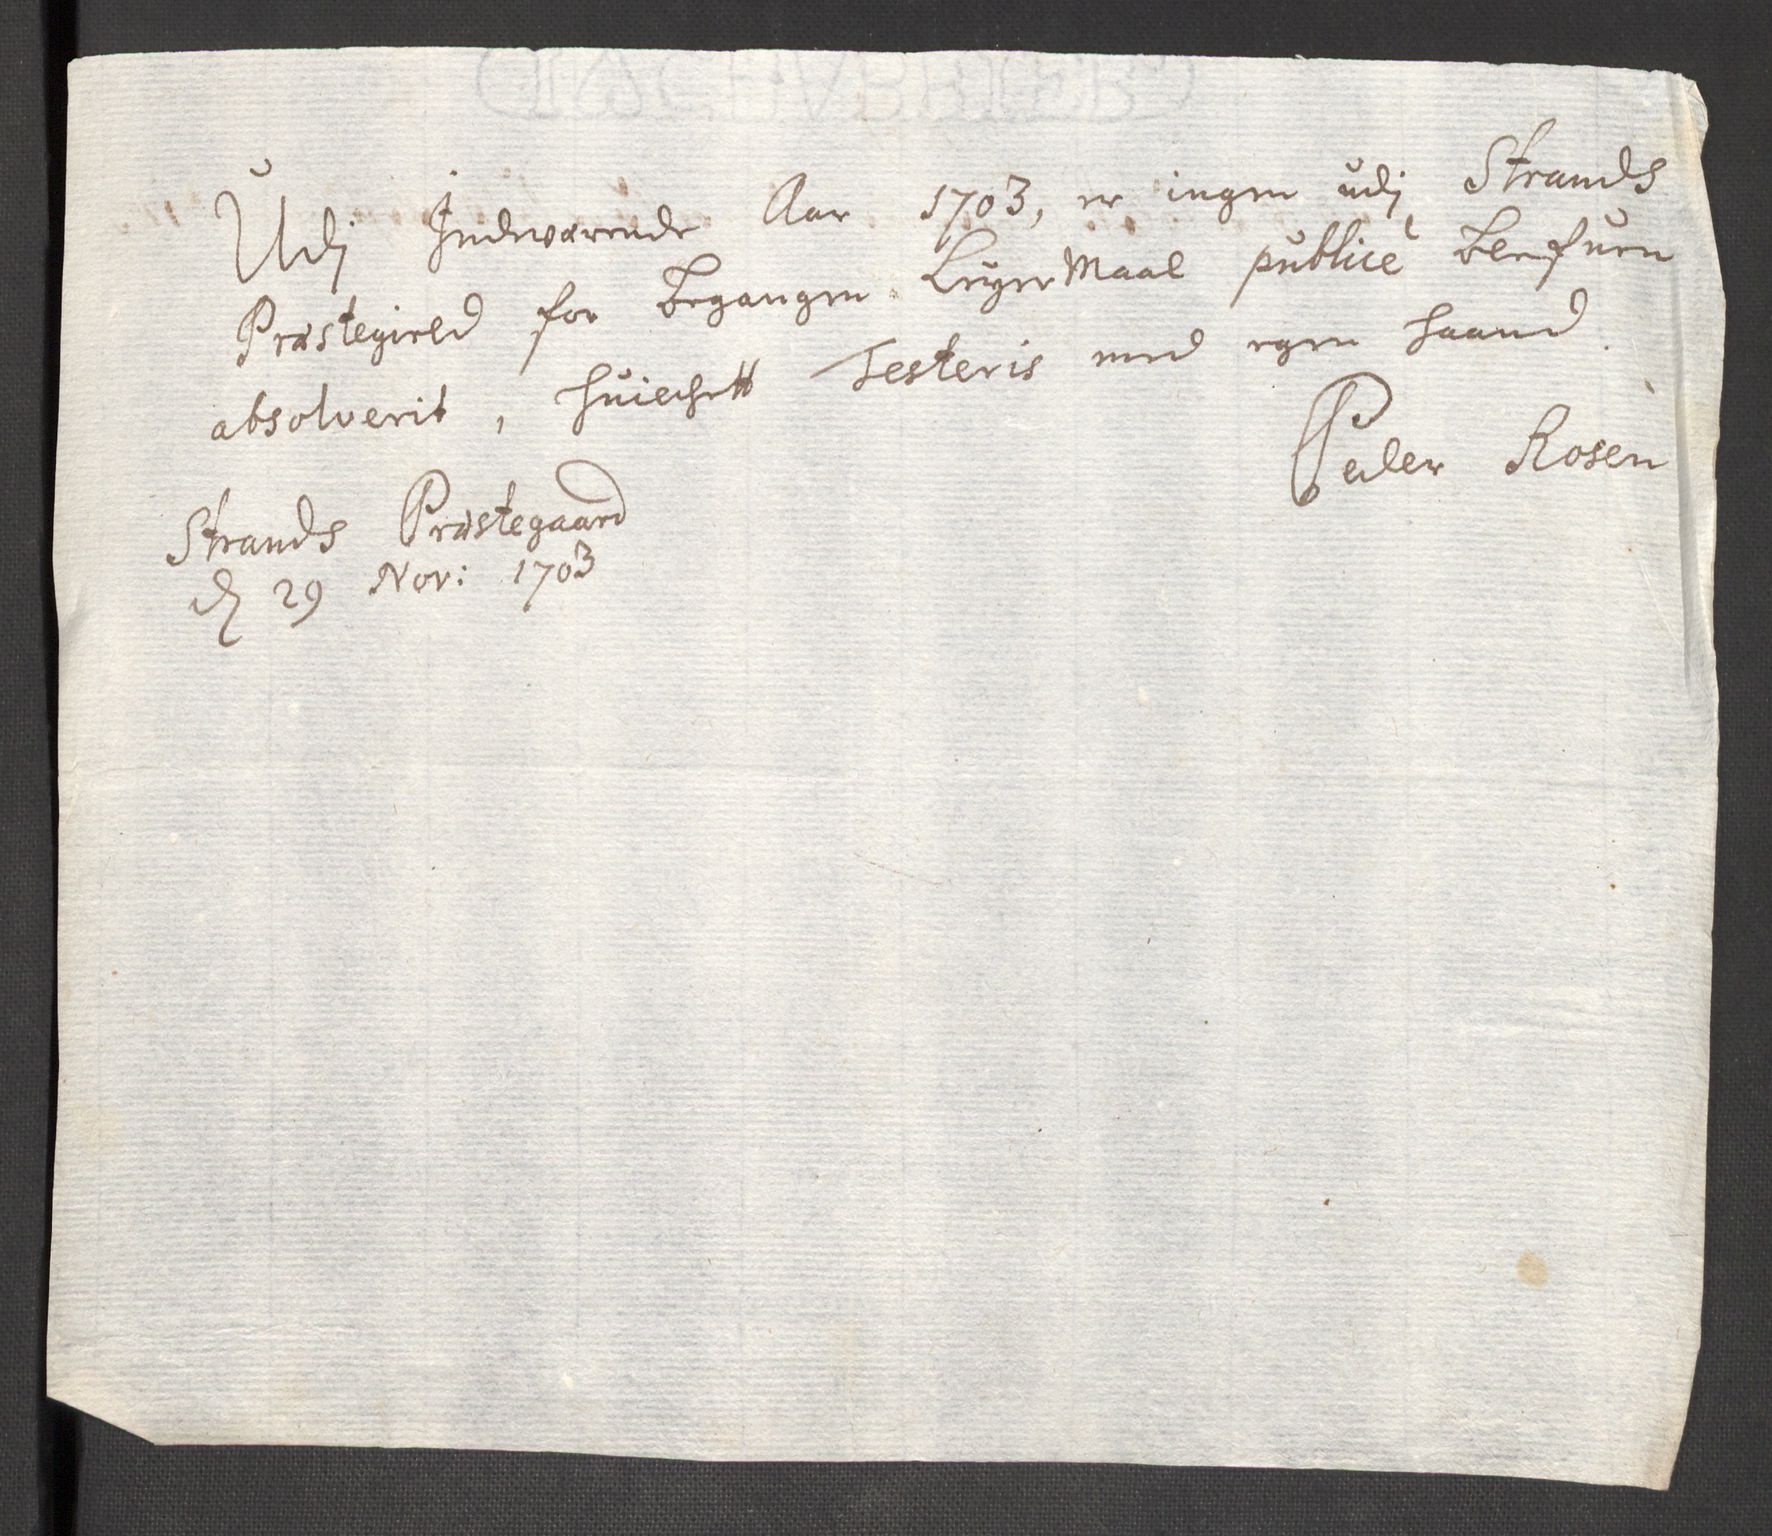 Udj Indwærende Aar 1703, er ingen udj Strands
Præstegield for begangen LeyerMaal publicè blefuen
absolverit, huilchett Testeris med egen haand.
Peder Rosen
Strands Præstegaard
d 29 Nov: 1703